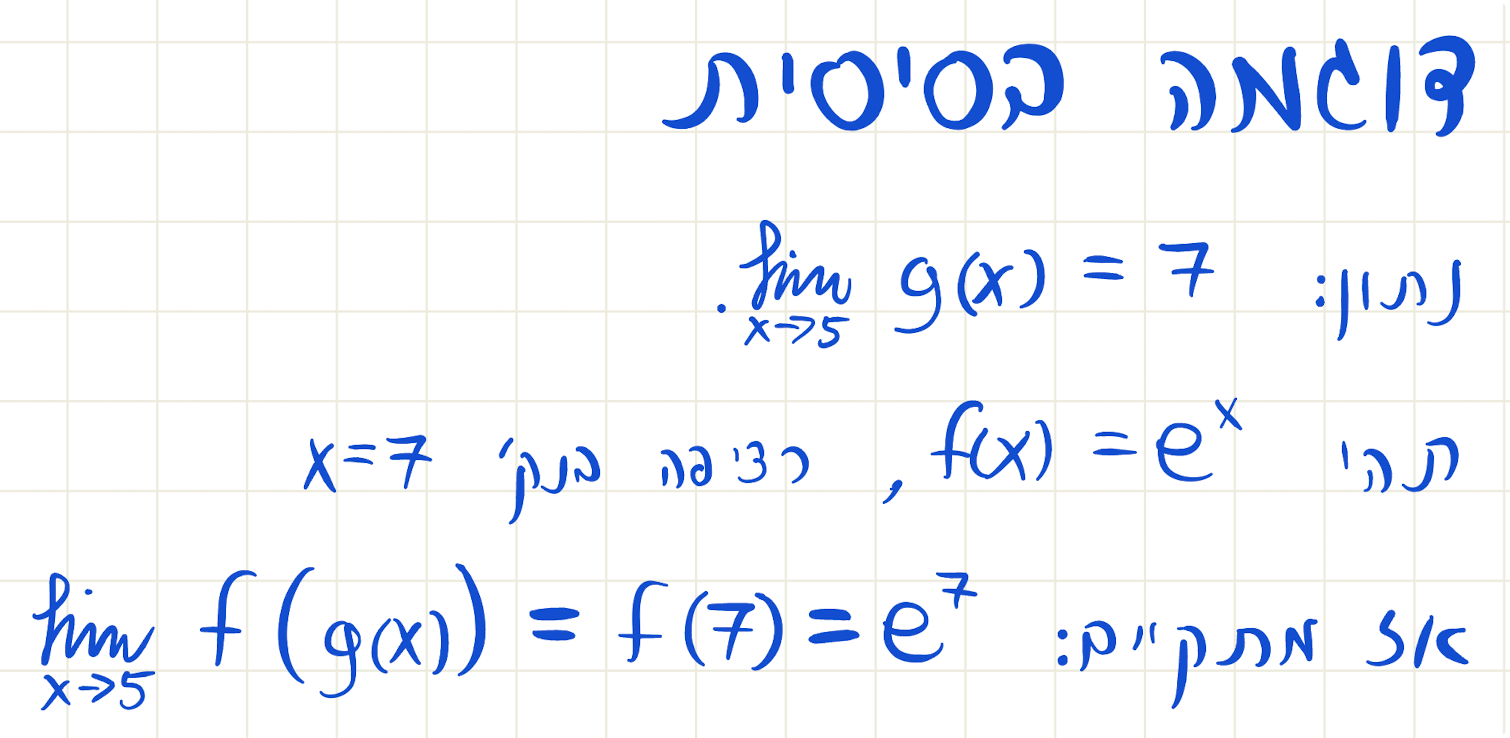 דוגמה בסיסית
נתון: lim x→5 g(x) = 7.
תהי f(x) = e^x, רציפה בנק' x=7
אז מתקיים: lim x→5 f(g(x)) = f(7) = e^7